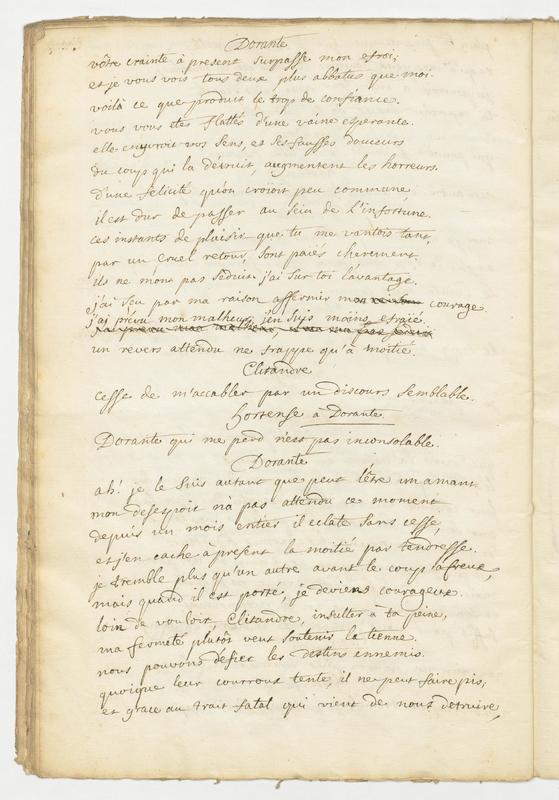 Dorante
vôtre crainte à present surpasse mon efroi;
et je vous vois tous deux plus abbatus que moi.
voilà ce que produit le trop de confiance.
vous vous etes flattés d'une vaine esperance.
elle enyvroit vos sens, et ses fausses douceurs
du coup qui la détruit, augmentent les horreurs.
d'une félicité qu'on croioit peu commune
il est dur de passer au sein de l'infortune.
ces instants de plaisir que tu me vantois tant,
par un cruel retour, sont paiés cherement.
ils ne m'ont pas séduit. j'ai sur toi l'avantage.
j'ai seu par ma raison affermir mon courage.
j'ai prévu mon malheur, j'en suis moins efraié.
un revers attendu ne frappe qu'à moitié.
Clitandre
cesse de m'accabler par un discours semblable.
hortense à Dorante
Dorante qui me perd n'est pas inconsolable.
Dorante
ah! je le suis autant que peut l'être un amant
mon desespoir n'a pas attendu ce moment
depuis un mois entier il eclate sans cesse,
et j'en cache à present la moitié par tendresse.
je tremble plus qu'un autre avant le coup afreux,
mais quand il est porté, je deviens courageux.
loin de vouloir, Clitandre, insulter à ta peine,
ma fermeté plutôt veut soutenir la tienne.
nous pouvons défier les destins ennemis.
quoique leur courroux tente, il ne peut faire pis;
et grace au trait fatal qui vient de nous detruire,